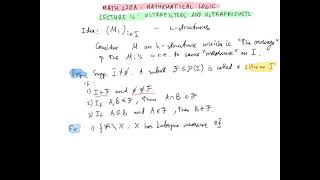 MATH 220A: MATHEMATICAL LOGIC
LECTURE 16: ULTRAFILTERS AND ULTRAPRODUCTS
Idea: (Mᵢ)ᵢ∈I - L-structures
Consider M an L-structure which is "the average"
of the Mᵢ's w.r.t. to some "measure" on I.
Defn: Supp. I ≠ ∅. A subset F ⊆ P(I) is called a filter on I
if:
1) I ∈ F and ∅ ∉ F
2) If A, B ∈ F, then A ∩ B ∈ F
3) If A ⊆ B and A ∈ F, then B ∈ F.
Ex: 1) {R \ X : X has Lebesgue measure 0}